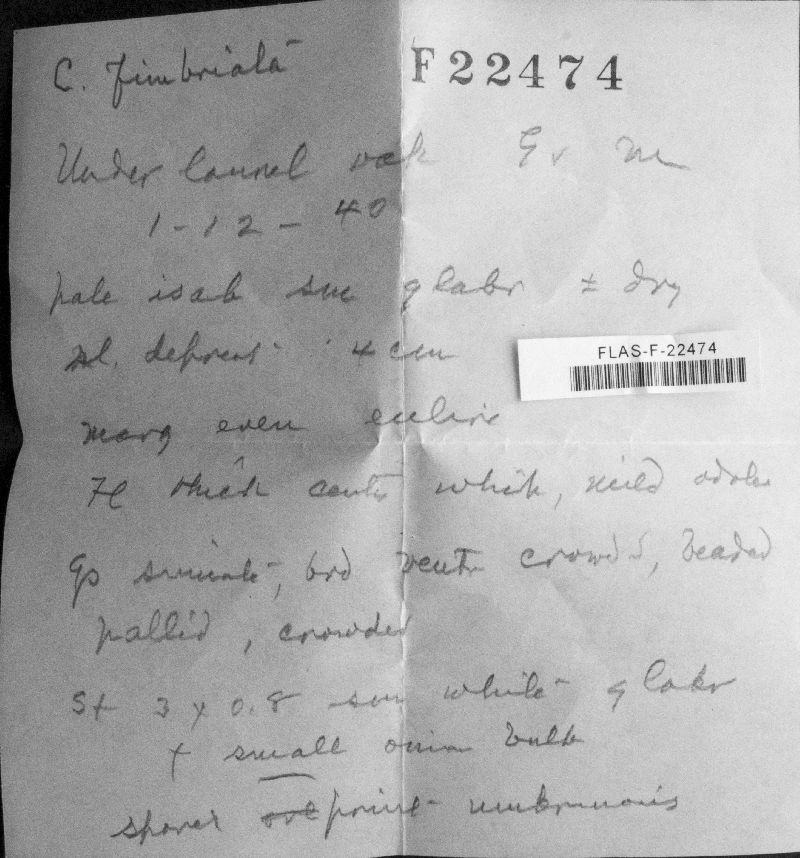 C. fimbriata F22474
Under laurel oak Gv
1-12-40
pale isab sm glabr ± dry
sl. depress 4 cm
FLAS-F-22474
marg even entire
Fl thick center white, mild odor
Gs sinuate, brd ventr crowdd, beaded
pallid, crowded
St 3 x 0.8 sm white glabr
+ small onion bulb
spores print umbrinous